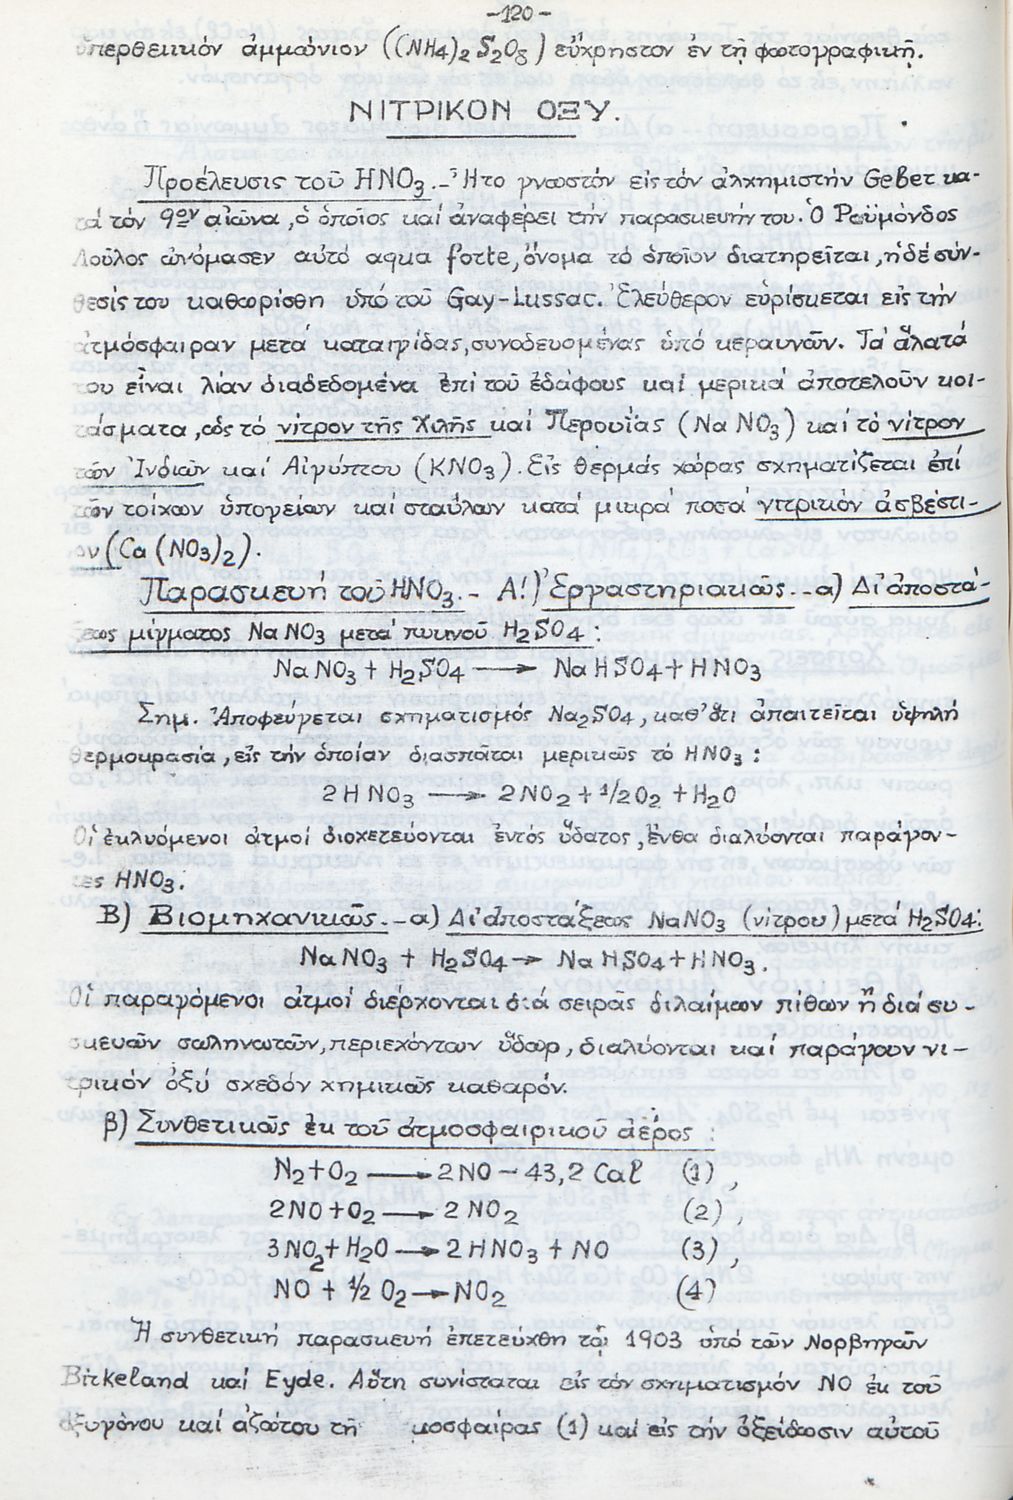 -120-
ὑπερθειικόν ἀμμώνιον ((NH4)2 S2O8) εὔχρηστον ἐν τῇ φωτογραφικῇ.
ΝΙΤΡΙΚΟΝ ΟΞΥ.
Προέλευσις τοῦ HNO3.- Ἦτο γνωστόν εἰς τόν ἀλχημιστήν Geber κα-
τά τόν 9ον αἰῶνα, ὁ ὁποῖος καί ἀναφέρει τήν παρασκευήν του. Ὁ Ραϋμόνδος
Λοῦλος ὠνόμασεν αὐτό aqua forte, ὄνομα τό ὁποῖον διατηρεῖται, ἡ δέ σύν-
θεσίς του καθωρίσθη ὑπό τοῦ Gay-Lussac. Ἐλεύθερον εὑρίσκεται εἰς τήν
ἀτμόσφαιραν μετά καταιγίδας, συνοδευομένας ὑπό κεραυνῶν. Τά ἅλατά
του εἶναι λίαν διαδεδομένα ἐπί τοῦ ἐδάφους καί μερικά ἀποτελοῦν κοι-
τάσματα, ὡς τό νίτρον τῆς Χιλῆς καί Περουΐας (Na NO3) καί τό νίτρον
τῶν Ἰνδιῶν καί Αἰγύπτου (KNO3). Εἰς θερμάς χώρας σχηματίζεται ἐπί
τῶν τοίχων ὑπογείων καί σταύλων κατά μικρά ποσά νιτρικόν ἀσβέστι-
ον (Ca (NO3)2).
Παρασκευή τοῦ HNO3.- Α!) Ἐργαστηριακῶς.-α) Δι' ἀποστά-
ξεως μίγματος Na NO3 μετά πυκνοῦ H2SO4:
Na NO3 + H2SO4 ⟶ Na HSO4 + HNO3
Σημ. Ἀποφεύγεται σχηματισμός Na2SO4, καθ' ὅτι ἀπαιτεῖται ὑψηλή
θερμοκρασία, εἰς τήν ὁποίαν διασπᾶται μερικῶς τό HNO3:
2 HNO3 ⟶ 2NO2 + 1/2O2 + H2O
Οἱ ἐκλυόμενοι ἀτμοί διοχετεύονται ἐντός ὕδατος, ἔνθα διαλύονται παράγον-
τες HNO3.
Β) Βιομηχανικῶς.-α) Δι' ἀποστάξεως NaNO3 (νίτρου) μετά H2SO4:
Na NO3 + H2SO4 → Na HSO4 + HNO3.
Οἱ παραγόμενοι ἀτμοί διέρχονται διά σειρᾶς διλαίμων πίθων ἤ διά συ-
σκευῶν σωληνωτῶν, περιεχόντων ὕδωρ, διαλύονται καί παράγουν νι-
τρικόν ὀξύ σχεδόν χημικῶς καθαρόν.
β) Συνθετικῶς ἐκ τοῦ ἀτμοσφαιρικοῦ ἀέρος:
N2 + O2 ⟶ 2 NO - 43,2 Cal (1),
2NO + O2 ⟶ 2 NO2 (2),
3NO2 + H2O ⟶ 2 HNO3 + NO (3),
NO + 1/2 O2 → NO2 (4)
Ἡ συνθετική παρασκευή ἐπετεύχθη τῷ 1903 ὑπό τῶν Νορβηγῶν
Birkeland καί Eyde. Αὕτη συνίσταται εἰς τόν σχηματισμόν NO ἐκ τοῦ
ὀξυγόνου καί ἀζώτου τῆ μοσφαίρας (1) καί εἰς τήν ὀξείδωσιν αὐτοῦ